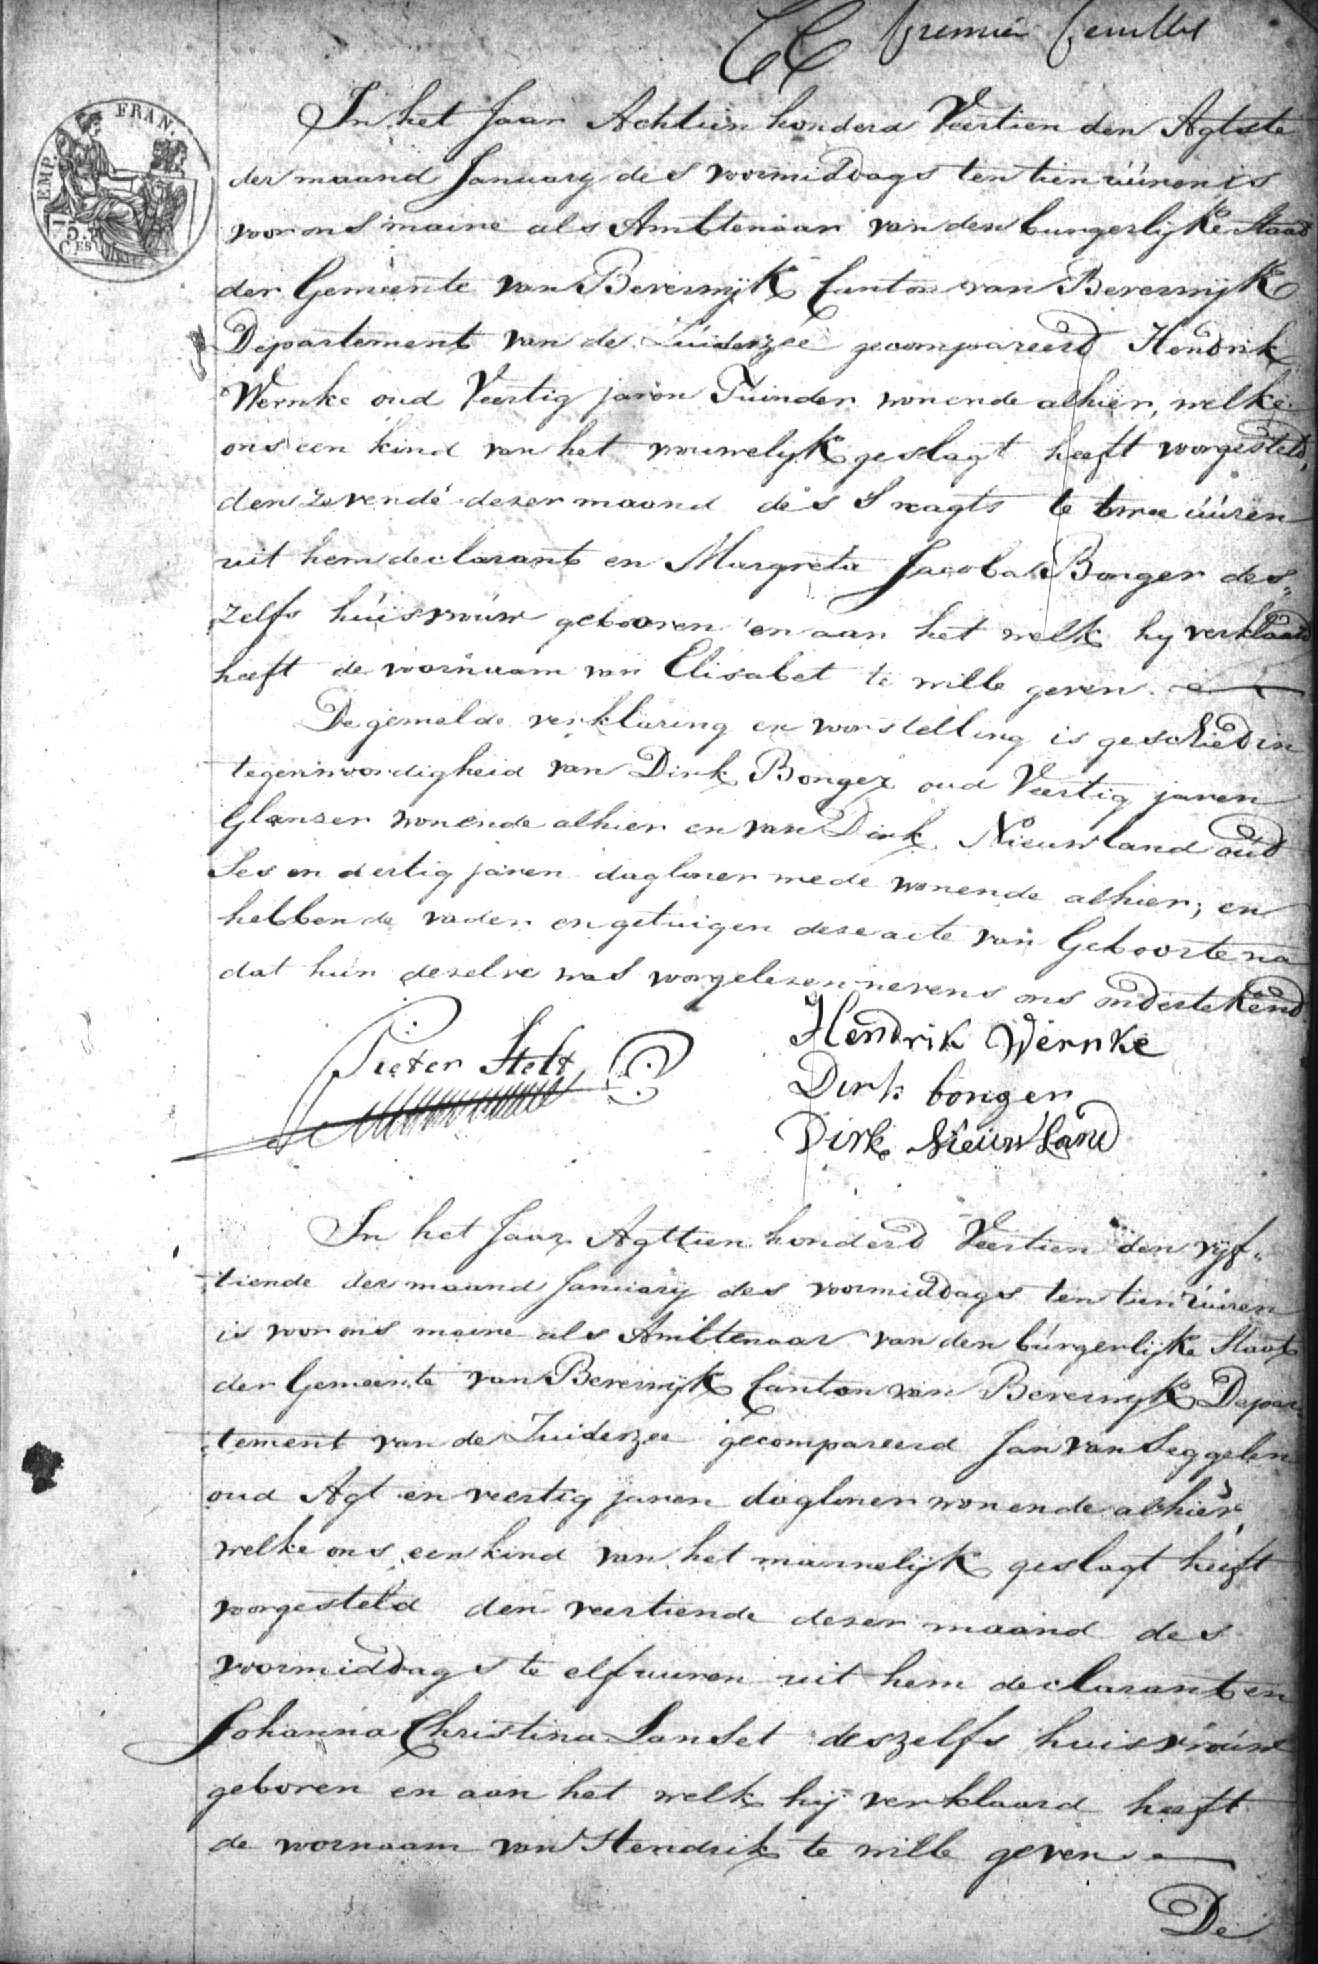 premier feuillet
EMP. FRAN.
75.
CES
In het Jaar Achtien honderd Veertien den Agtste
der maand January des voormiddags ten tien uúren is
voor ons maire als Ambtenaar van den burgerlyke Staad
der Gemeente van Beverwyk Canton van Beverwyk
Departement van de Zuiderzee gecompareerd Hendrik
Wernke oud Veertig jaren Tuinder wonende alhier, welke
ons een kind van het vrouwelyk geslagt heeft voorgesteld,
den zevende dezer maand des S nagts te twee uúren
uit hem declarant en Margreta Jacoba Bonger des=
zelfs húisvroúw gebooren en aan het welk hy verklaard
heeft de voornaam van Elisabet te wille geven.
De gemelde verklaring en voorstelling is geschied in
tegenwoordigheid van Dirk Bonger oud Veertig jaren
Glanser wonende alhier en van Dirk Nieuwland oud
Ses en dertig jaren dagloner mede wonende alhier; en
hebben de vader en getuigen deze acte van Geboorte na
dat hun dezelve was voorgelezen nevens ons ondertekend
Hendrik Wernke
Pieter Stelt
Dirk bonger
Dirk Nieuwland
In het Jaar Agttien honderd Veertien den vyf=
tiende der maand January des voormiddags ten tien uúren
is voor ons maire als Ambtenaar van den búrgerlijke Staat
der Gemeente van Beverwyk Canton van Beverwyk Depar
tement van de Zuiderzee gecompareerd Jan van Seggelen
oud Agt en veertig jaren dagloner wonende alhier,
welke ons een kind van het mannelyk geslagt heeft
voorgesteld den veertiende dezer maand des
voormiddags te elf uuren uit hem declarant en
Johanna Christina Sanset deszelfs huisvroúw
geboren en aan het welk hij verklaard heeft
de voornaam van Hendrik te wille geven
De